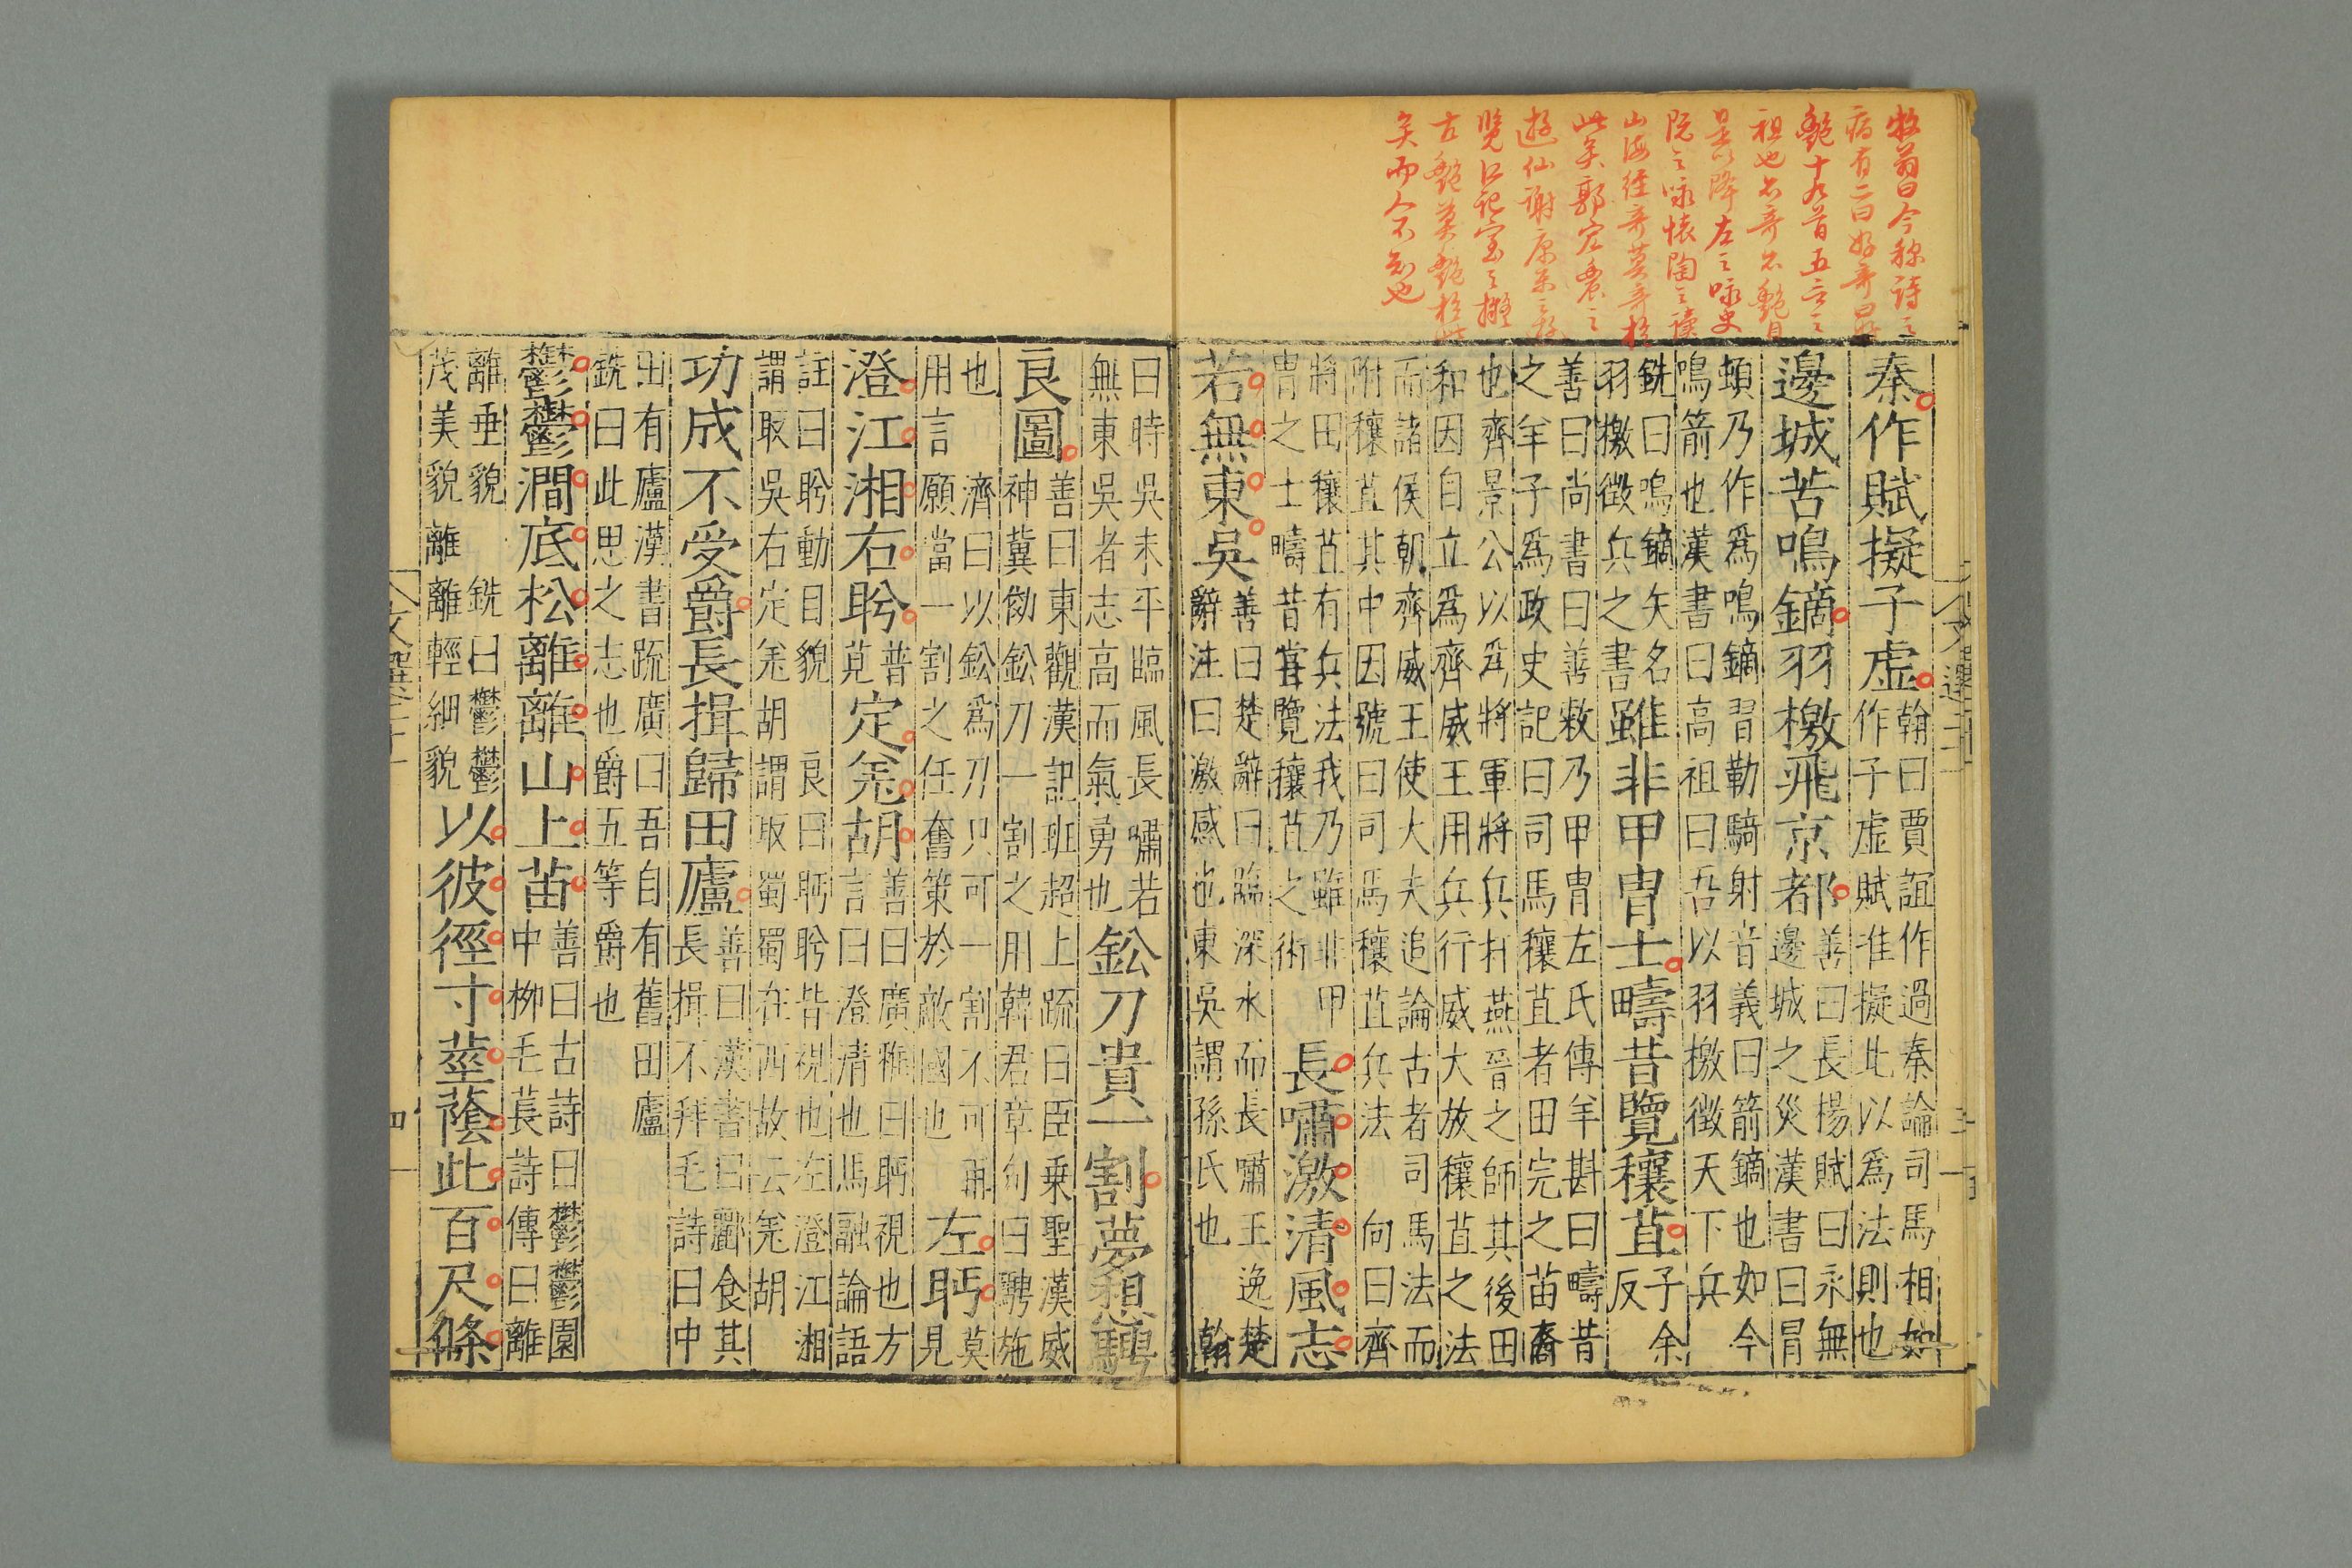 牧翁曰今称詩之
病有二曰好奇曰好
艶十九首五言之
祖也不奇不艶自
是以降左之咏史
阮之咏懐陶之讀
山海経奇莫奇於
此矣郭宏農之
遊仙謝康樂之
覽江記室之擬
古艶莫艶於此
矣而人不知也
秦作賦擬子虛
翰曰賈誼作過秦論司馬相如
作子虛賦准擬此以爲法則也
邊城苦鳴鏑羽檄飛京都
善曰長楊賦曰永無
邊城之災漢書曰冒
頓乃作爲鳴鏑習勒騎射音義曰箭鏑也如今
鳴箭也漢書曰高祖曰吾以羽檄徵天下兵
銑曰鳴鏑矢名
羽檄徵兵之書
雖非甲冑士疇昔覽穰苴
子余
反
善曰尚書曰善敹乃甲冑左氏傳羊斟曰疇昔
之羊子爲政史記曰司馬穰苴者田完之苗裔
也齊景公以爲將軍將兵扞燕晉之師其後田
和因自立爲齊威王用兵行威大放穰苴之法
而諸侯朝齊威王使大夫追論古者司馬法而
附穰苴其中因號曰司馬穰苴兵法
向曰齊
將田穰苴有兵法我乃雖非甲
冑之士疇昔甞覽穰苴之術
長嘯激清風志
若無東吳
善曰楚辭曰臨深水而長嘯王逸楚
辭注曰激感也東吳謂孫氏也
翰
曰時吳未平臨風長嘯若
無東吳者志高而氣勇也
鈆刀貴一割夢想騁
良圖
善曰東觀漢記班超上疏曰臣乗聖漢威
神冀俲鈆刀一割之用韓君章句曰騁施
也
濟曰以鈆爲刀只可一割不可再
用言願當一割之任奮策於敵國也
左眄
莫
見
澄江湘右盻
普
莧
定羌胡
善曰廣雅曰眄視也方
言曰澄清也馬融論語
註曰盻動目貌
良曰眄盻皆視也左澄江湘
謂取吳右定羌胡謂取蜀蜀在西故云羌胡
功成不受爵長揖歸田廬
善曰漢書曰酈食其
長揖不拜毛詩曰中
田有廬漢書疏廣曰吾自有舊田廬
銑曰此思之志也爵五等爵也
鬱鬱澗底松離離山上苗
善曰古詩曰鬱鬱園
中柳毛萇詩傳曰離
離垂貌
銑曰鬱鬱
茂美貌離離輕細貌
以彼徑寸莖蔭此百尺條